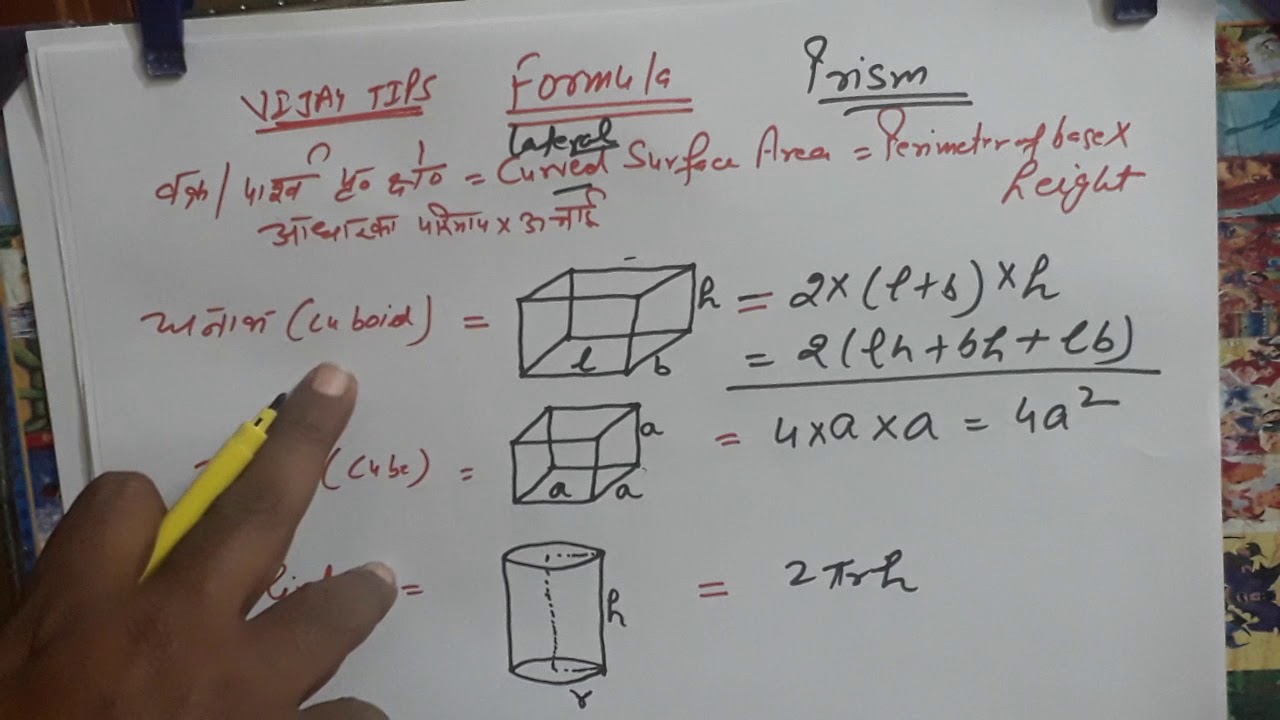 VIJAY TIPS Formula Prism
lateral
वक्र / पार्श्व पृ० क्षे० = Curved Surface Area = Perimeter of base ×
height
आधार का परिमाप × ऊँचाई
घनाभ (Cuboid) = h = 2 × (l + b) × h
l b = 2 (lh + bh + lb)
(Cube) = a a a = 4 × a × a = 4a²
= h = 2πrh
r